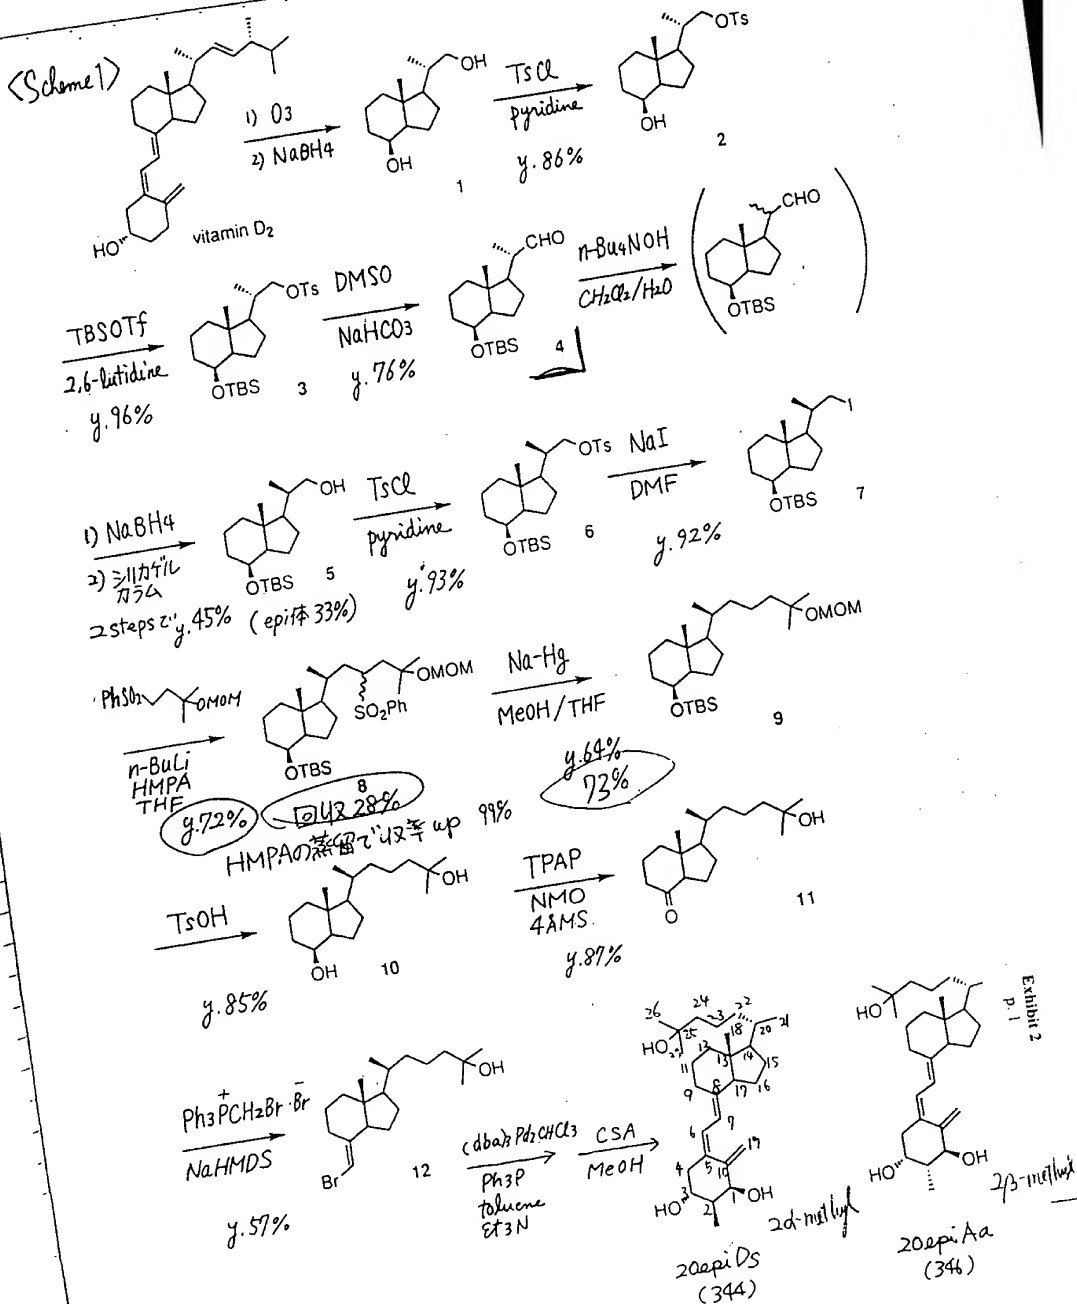 <Scheme1>
1) O3
2) NaBH4
OH
OH
1
TsCl
pyridine
y.86%
OTs
OH
2
HO
vitamin D2
TBSOTf
2,6-lutidine
y.96%
OTs
OTBS
3
DMSO
NaHCO3
y.76%
CHO
OTBS
4
n-Bu4NOH
CH2Cl2/H2O
CHO
OTBS
1) NaBH4
2) シリカゲル
カラム
2stepsで y.45% (epi体 33%)
OH
OTBS
5
TsCl
pyridine
y.93%
OTs
OTBS
6
NaI
DMF
y.92%
I
OTBS
7
PhSO2
OMOM
n-BuLi
HMPA
THF
y.72%
OMOM
SO2Ph
OTBS
8
回収28%
HMPAの蒸留で収率up 99%
Na-Hg
MeOH/THF
y.64%
73%
OMOM
OTBS
9
TsOH
y.85%
OH
OH
10
TPAP
NMO
4ÅMS.
y.87%
OH
O
11
Ph3PCH2Br·Br
+
-
NaHMDS
y.57%
OH
Br
12
(dba)3Pd2CHCl3
Ph3P
toluene
Et3N
CSA
MeOH
26
24
23
22
25
HO
18
20
21
12
13
14
15
11
16
9
8
17
7
6
19
4
5
10
3
HO
2
1
OH
2α-methyl
20epiDs
(344)
HO
HO
OH
2β-methyl
20epiAa
(346)
Exhibit 2
p. 1